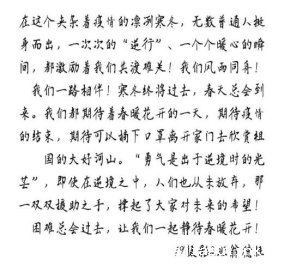 在这个夹杂着疫情的凛冽寒冬，无数普通人挺
身而出，一次次的“逆行”、一个个暖心的瞬
间，都激励着我们共渡难关！我们风雨同舟！
我们一路相伴！寒冬终将过去，春天总会到
来。我们都期待着春暖花开的一天，期待疫情
的结束，期待可以摘下口罩离开家门去欣赏祖
国的大好河山。“勇气是出于逆境时的光
芒”，即使在逆境之中，人们也从未放弃，那
一双双援助之手，撑起了大家对未来的希望！
困难总会过去，让我们一起静待春暖花开！